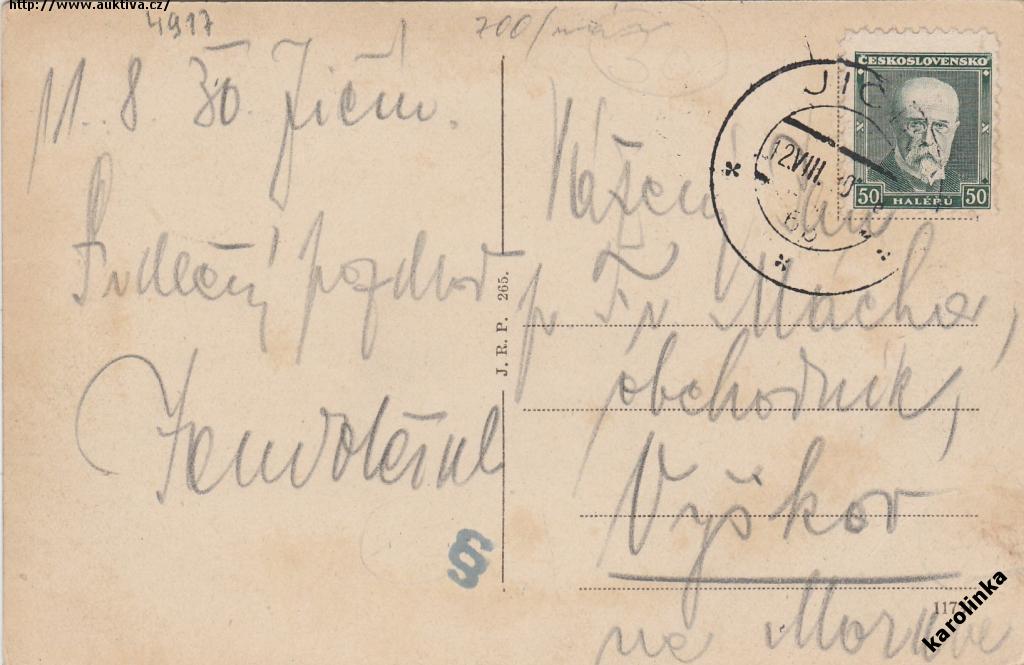 http://www.auktiva.cz/
4917
700/
11. 8. 30. Jičín.
Srdečný pozdrav
Vážený Pán
p. Fr. Mácha,
obchodník,
Vyškov
na Moravě
J. R. P. 265.
ČESKOSLOVENSKO
50 HALÉŘŮ 50
JIČ
12.VIII.
6b
117
karolinka